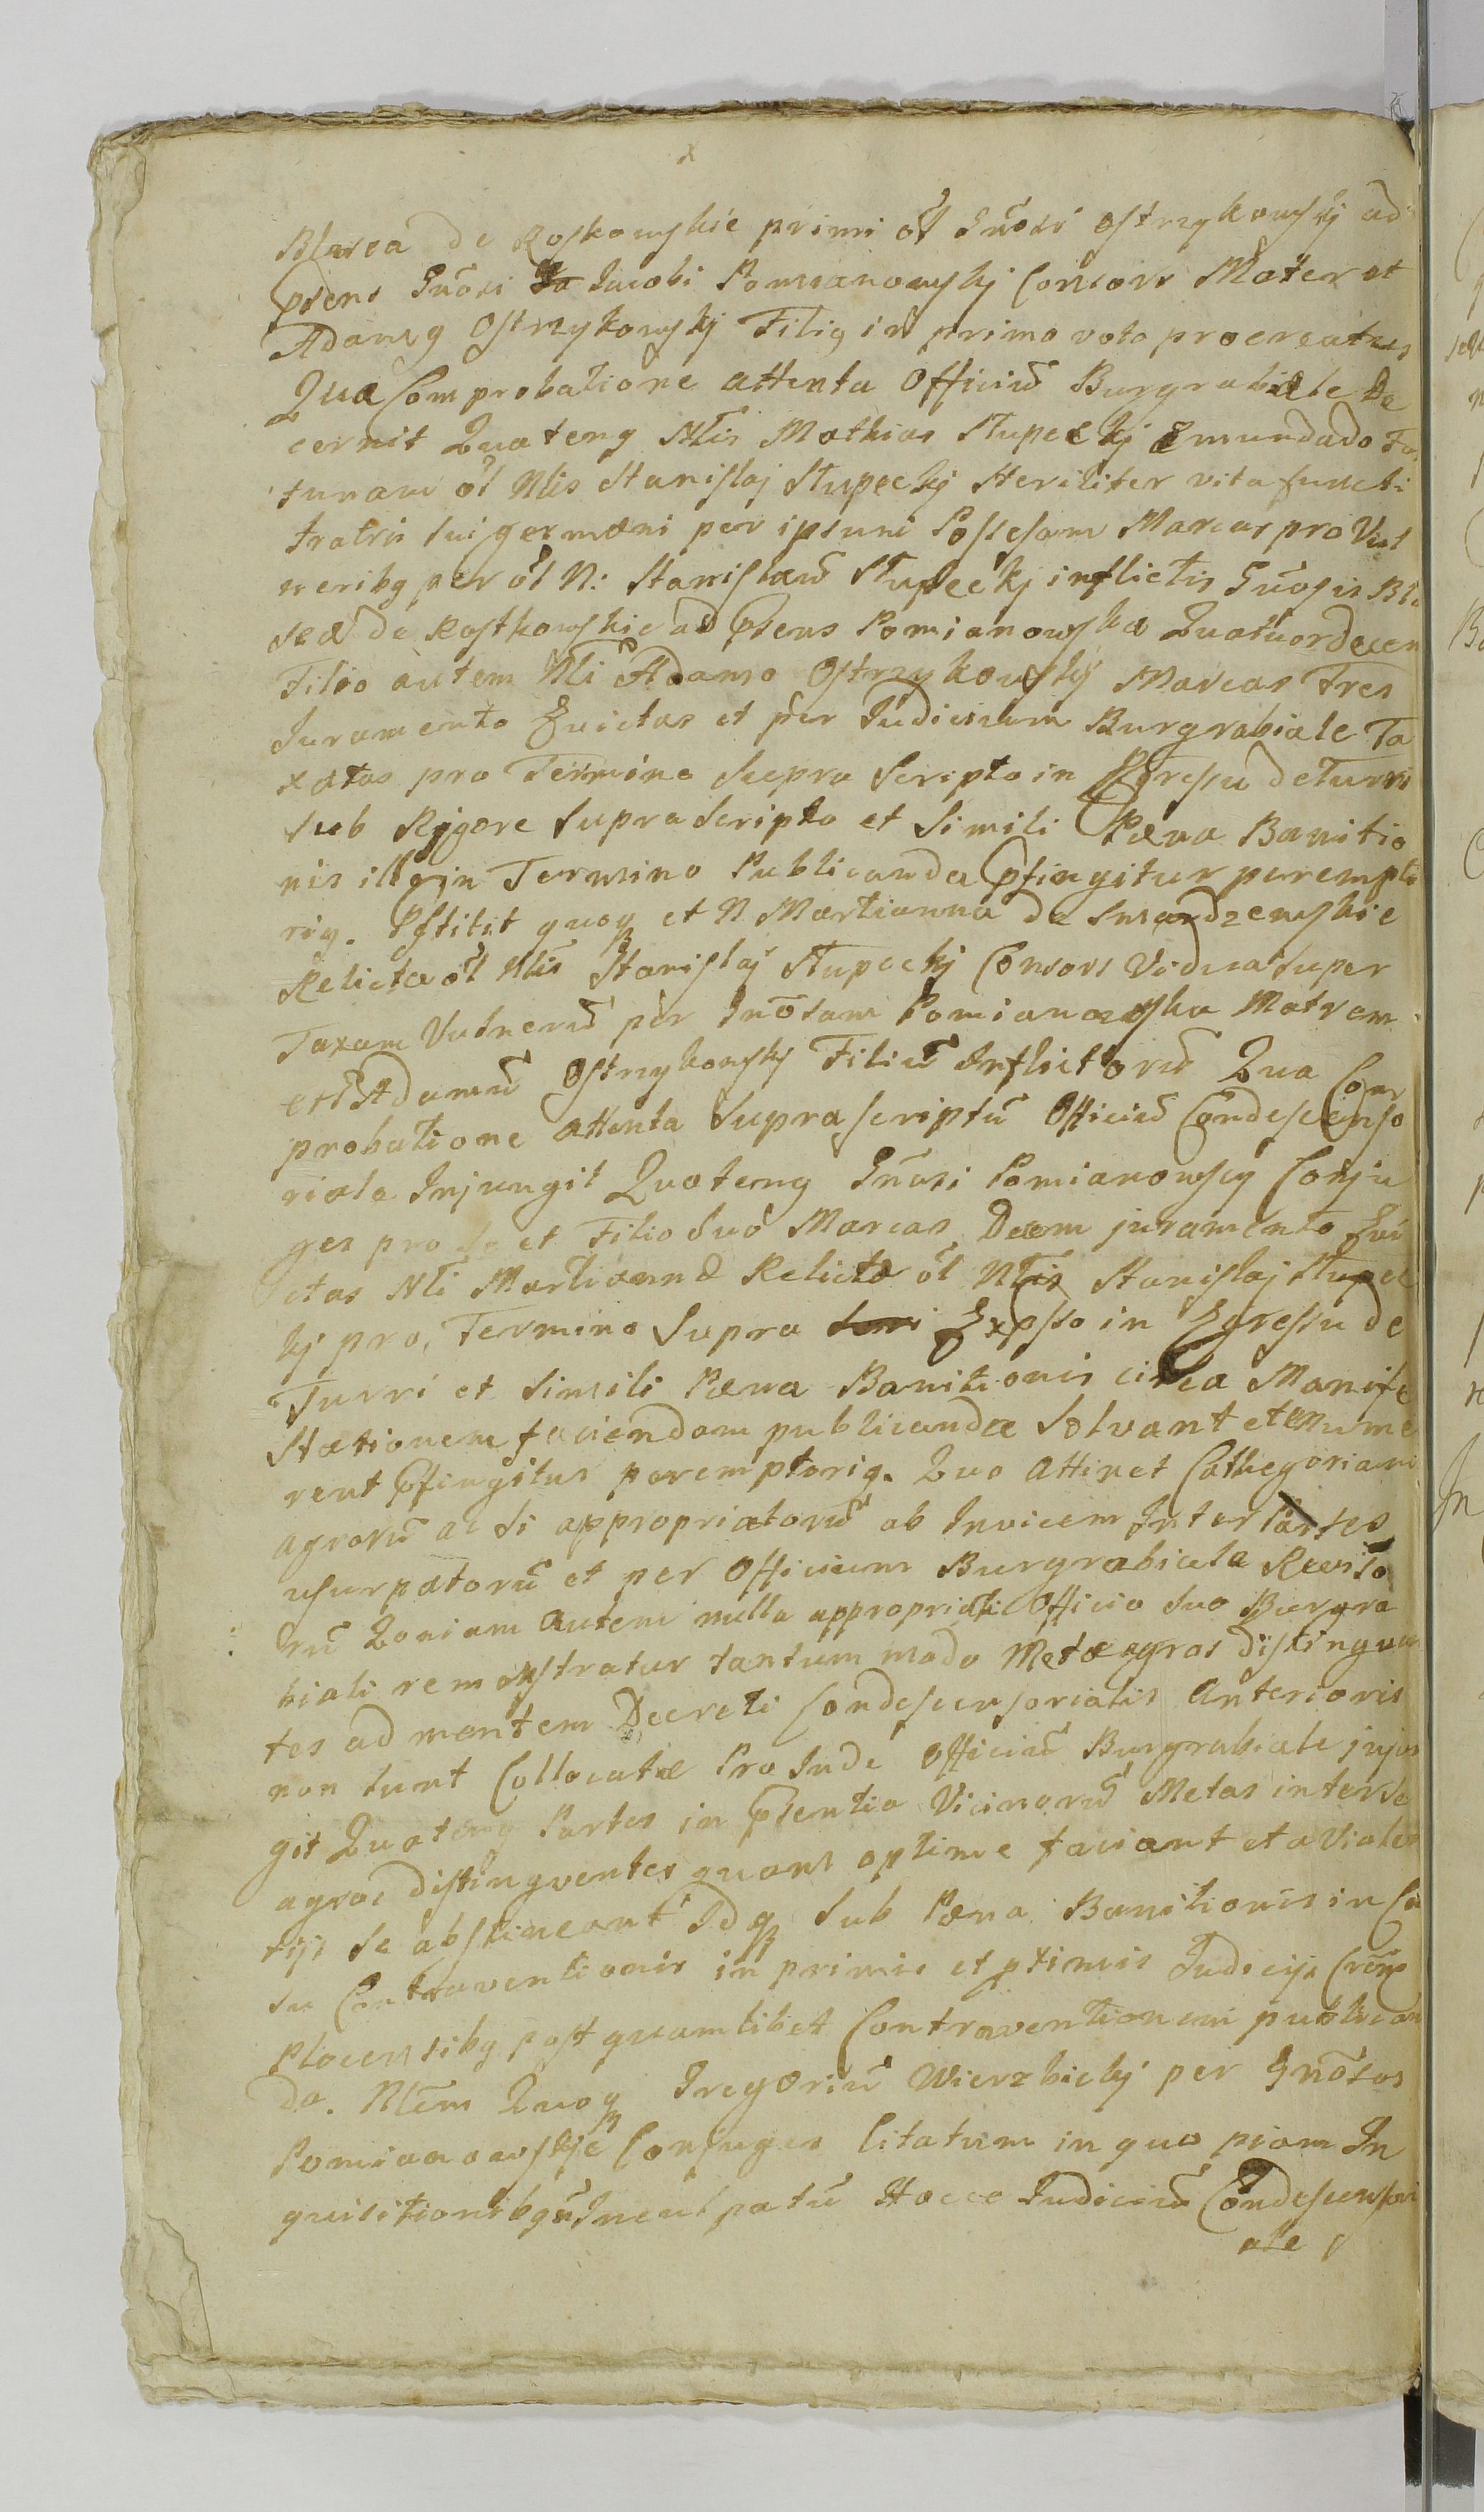 x
Blasea de Roskowskie primi ol Gnõsi Ostrzykowskj ad
pdens Gnõsi Jacobi Pomianowskj Consors Mater et
Adamg Ostrzykowskj Filig in primo voto procreatus
Qua Comprobatione attenta Officiũ Burgrabiale De
cernit Quateng Nlis Mathias Słupeckj Emundado For
tunam ol Nlis Stanislaj Słupeckj steriliter vita functi
fratris sui germani per ipsum Possesam Marcas pro Vul
neribg per ol N: Stanislaũ Słupeckj inflictis Gnõsis Bla
sea de Rostkowskie ad pdens Pomianowska Quatuordecem
Filio autem Nli Adamo Ostrzykowskj Marcas Tres
Juramento Evictas et per Judicium Burgrabiale Ta
xatas pro Termino Supra Scripto in Egressu de Turri
sub Rygore Supra Scripto et Simili Pæna Banitio
nis illg in Termino Publicanda pfingitur perempto
rig. Pstitit quoq et N Martianna de Smardzewskie
Relicta ol Nlis Stanislaj Słupeckj Consors Vidua super
Taxam Vulnerũ per Gnõsam Pomianowska Matrem
et Adamũ Ostrzykowskj Filiũ Inflictorũ Qua Com
probatione attenta Suprascriptũ Officiũ Condescenso
riale Injungit Quateng Gnõsi Pomianowscy Conju
ges pro se et Filio Suo Marcas Decem juramento Evi
ctas Nli Martianna Relicta ol Nlis Stanislaj Słupec
kj pro, Termino Supra Expsso in Egressu de
Turri et Simili Pæna Banitionis circa Manife
stationem faciendam publicandæ Solvant et enume
rent pfingitur peremptorig. Quo Attinet Cathegoriam
agrorũ ac si appropriatorũ ab Invicem Inter Partes
usurpatorũ et per Officium Burgrabiale Reviso
rũ Qoniam autem nulla appropriatio Officio suo Burgra
biali remonstratur tantum modo Metæ agros distinguen
tes ad mentem Decreti Condescensorialis Anterioris
non sunt Collocatæ Pro Inde Officiũ Burgrabiale injun
git Quateng Partes in pdentia Vicinorũ Metas inter se
agros distingventes quam optime faciant et a Violen
tijs se abstineant Idq Sub Pæna Banitionis in Ca
su Contraventionis in primis et ptimis Judicijs Crens
Plocensibg post quamlibet Contraventionem publican
da. Nlem Quoq Gregoriũ Wierzbickj per Gnõsos
Pomianowskje Conjuges Citatum in quo piam In
quisitionibg Inculpatũ Hocce Judiciũ Condescensori
ale